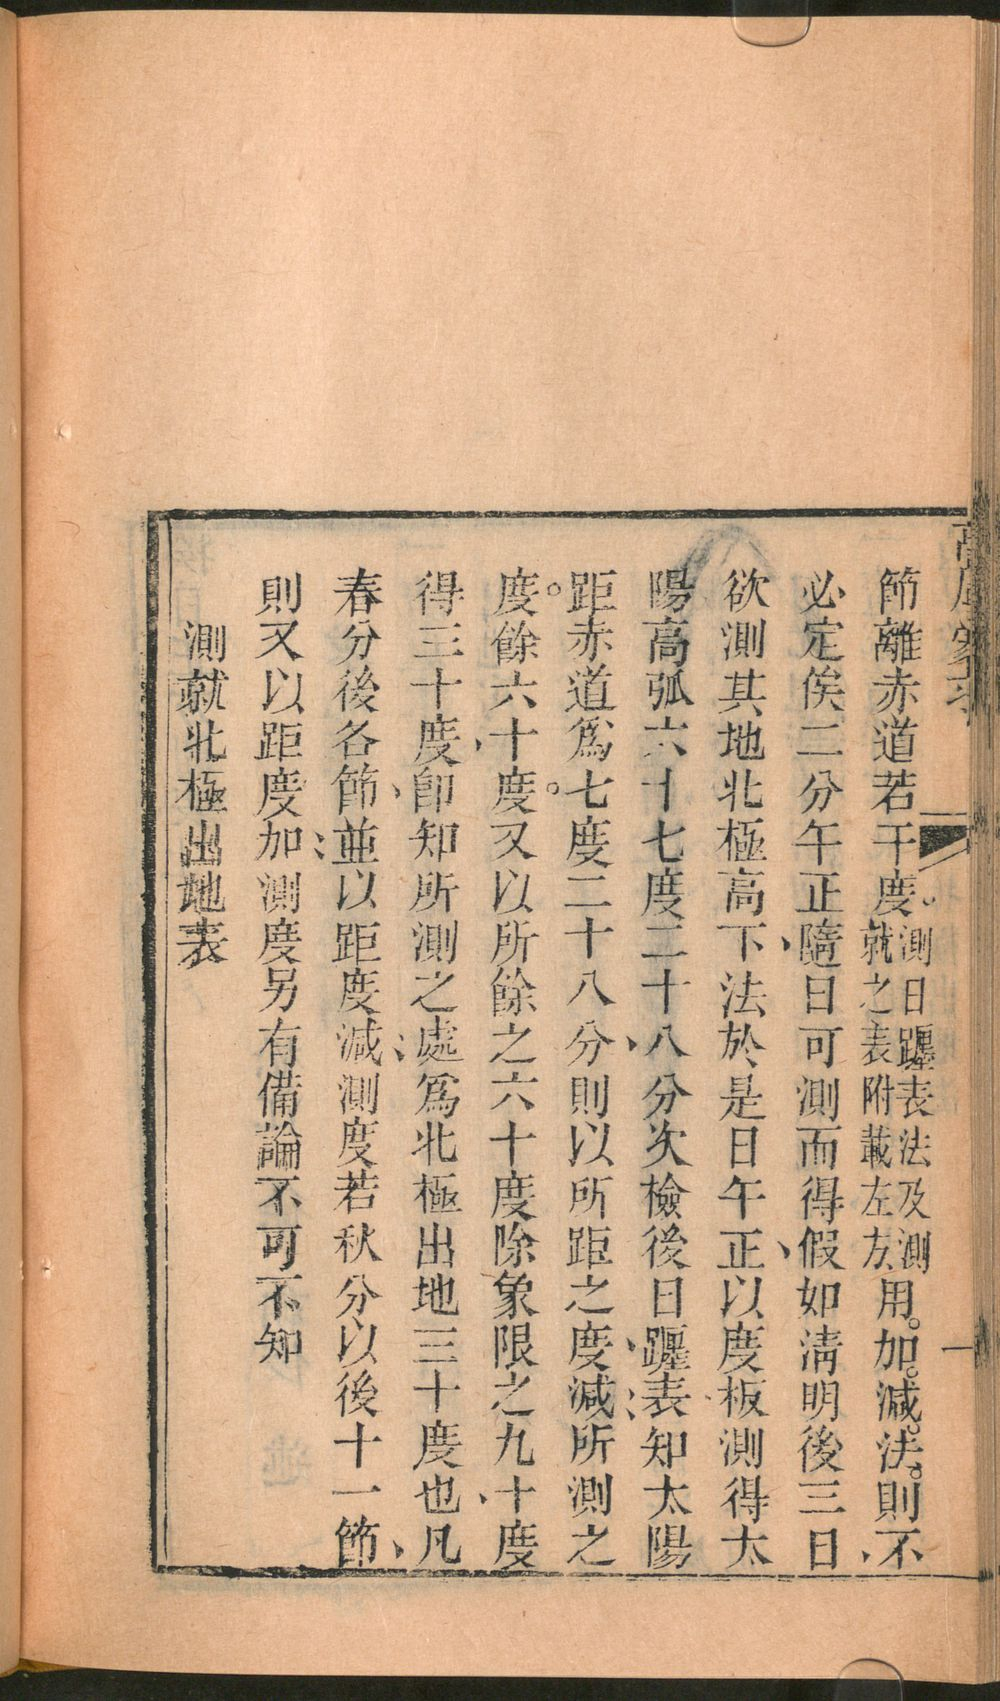 節離赤道若干度測日躔表法及測就之表附載左方用加減法則不
必定俟二分午正隨日可測而得假如淸明後三日
欲測其地北極高下法於是日午正以度板測得太
陽高弧六十七度二十八分次檢後日躔表知太陽
距赤道爲七度二十八分則以所距之度減所測之
度餘六十度又以所餘之六十度除象限之九十度
得三十度卽知所測之處爲北極出地三十度也凡
春分後各節並以距度減測度若秋分以後十一節
則又以距度加測度另有備論不可不知
測就北極出地表